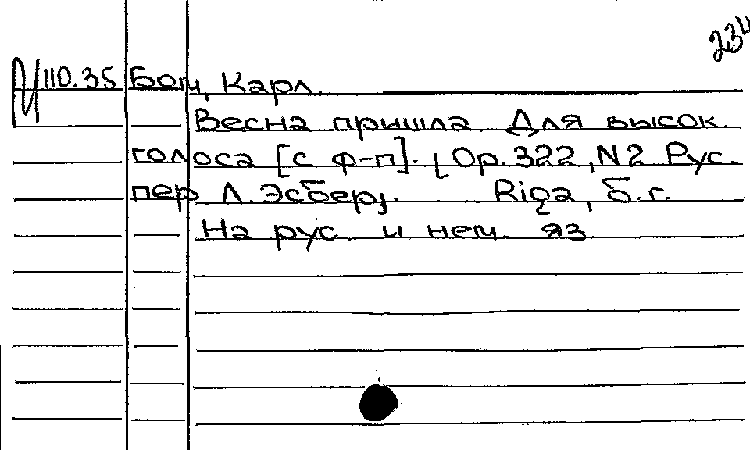 23"
И110.35 Бом, Карл.
Весна пришла. Для высок.
голоса [с ф-п]. [Op. 322, N2 Рус.
пер. Л. Эсбер]. Riga, б.г.
На рус. и нем. яз